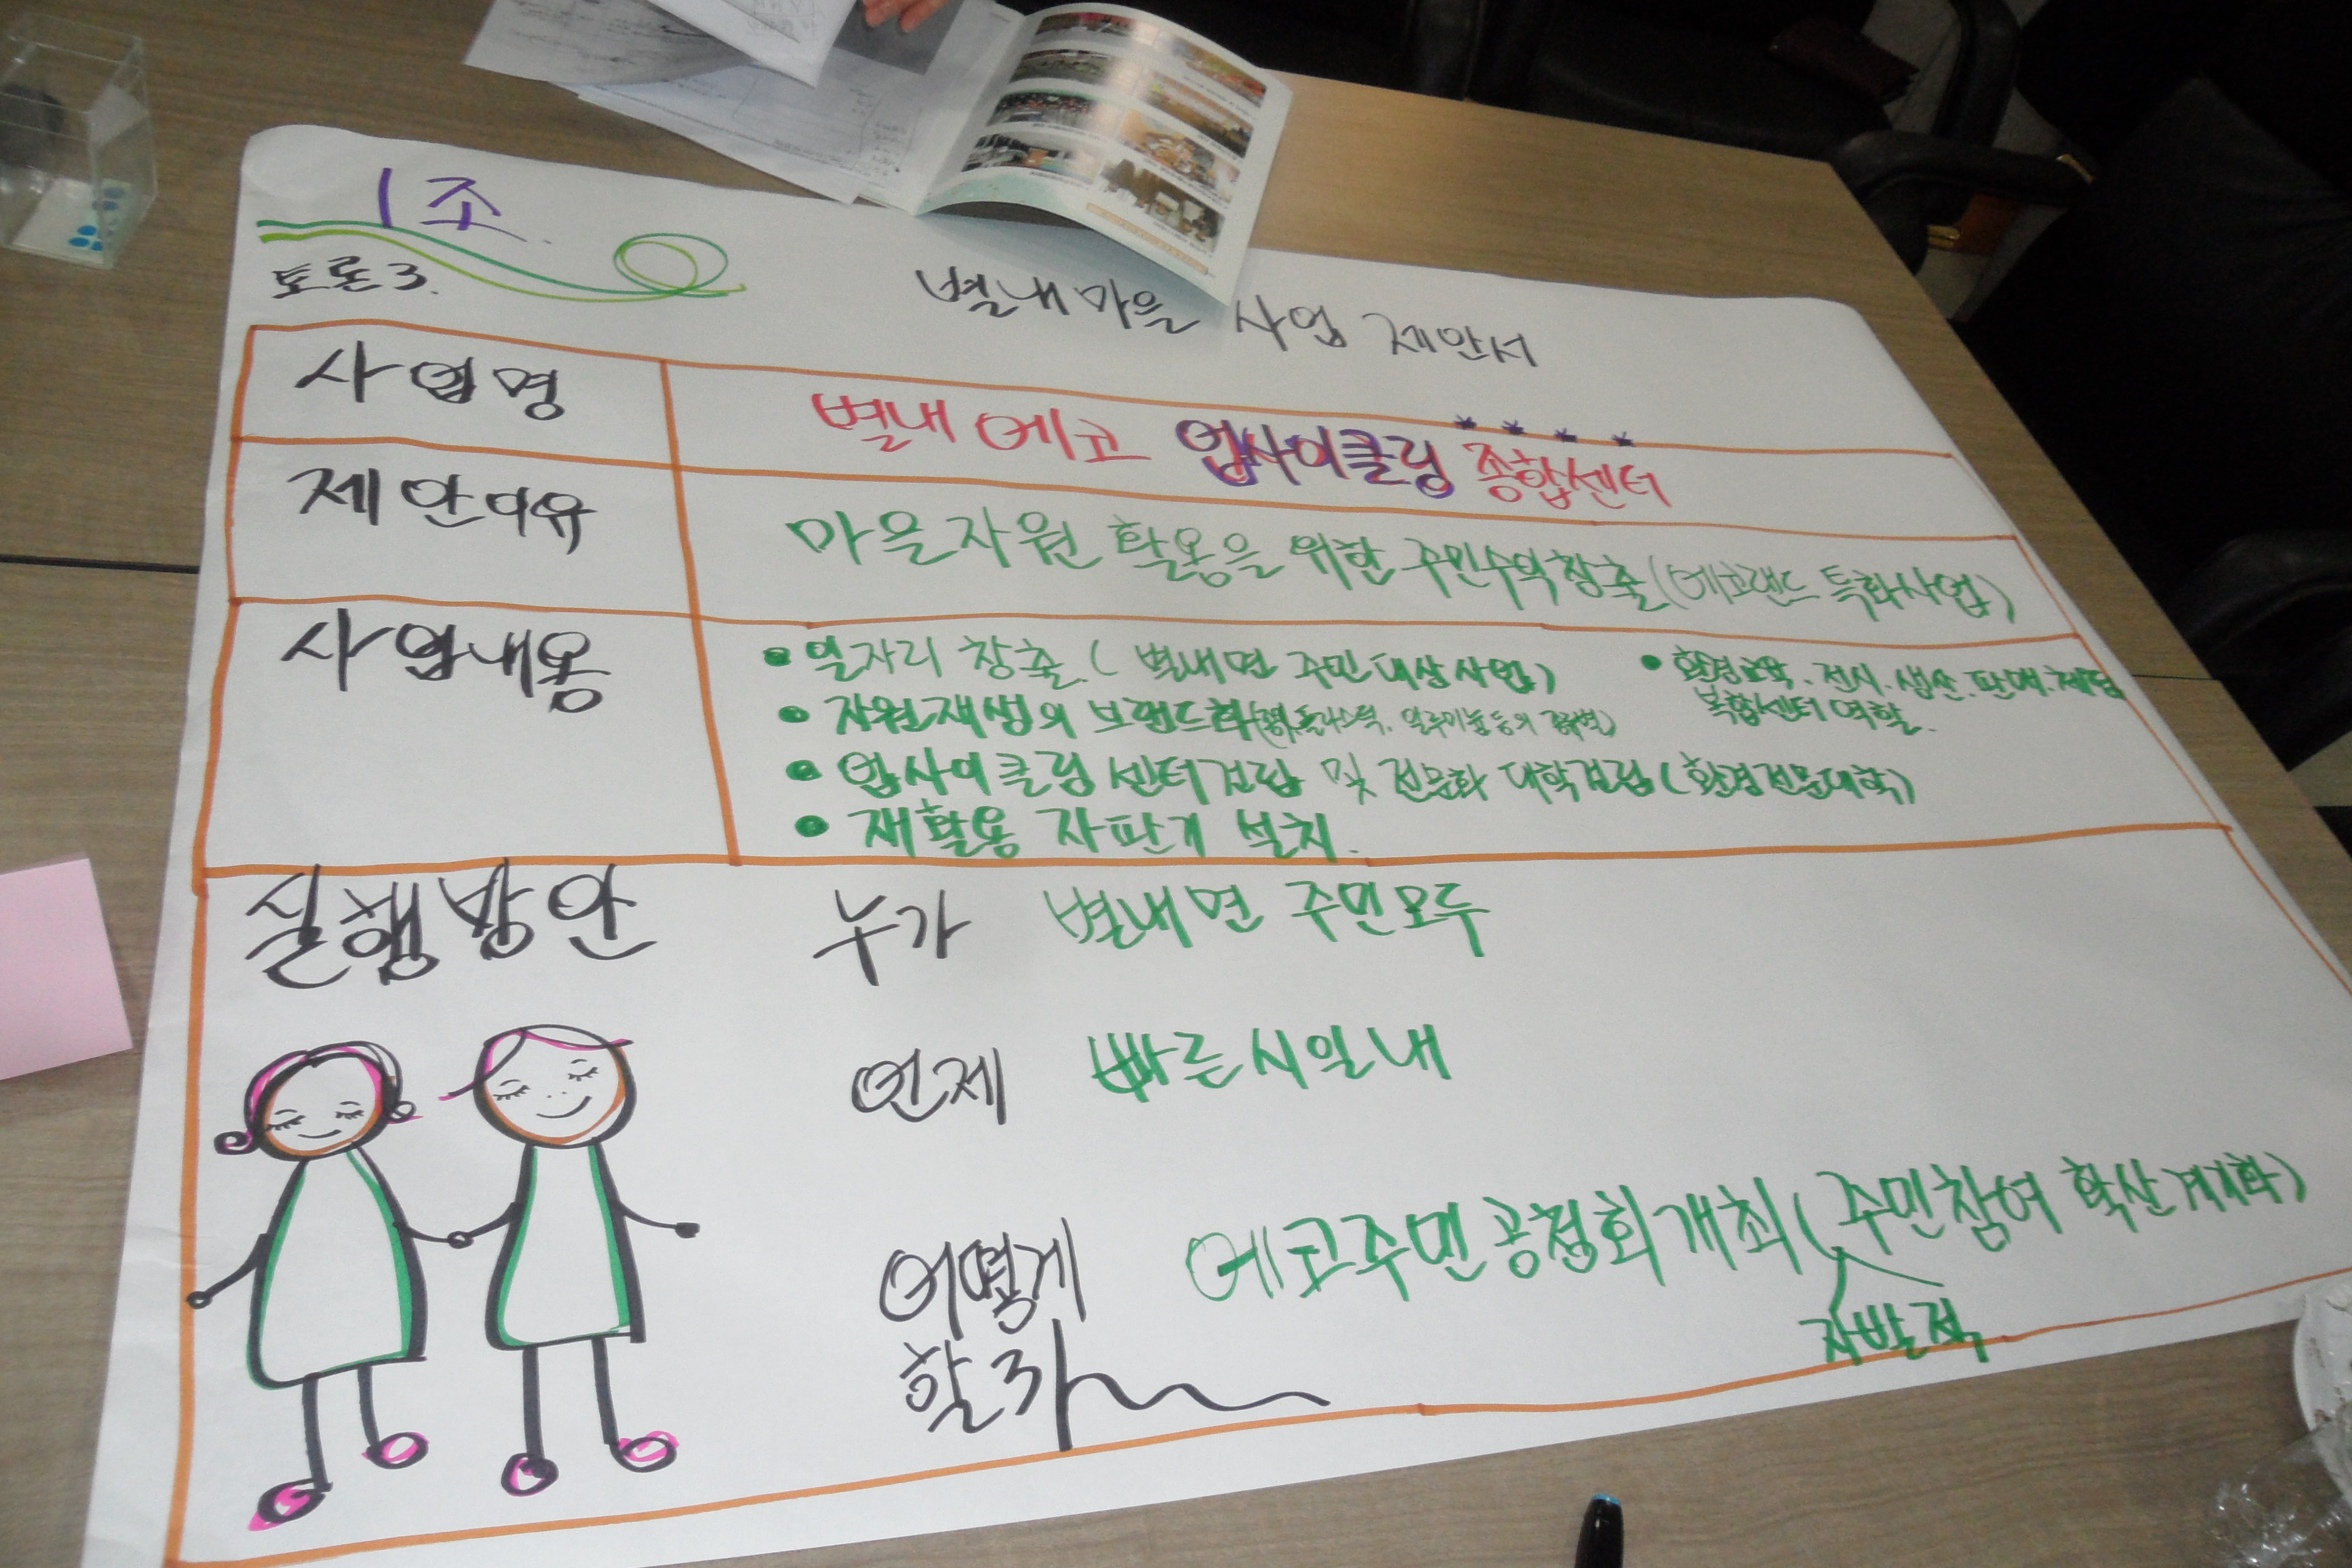 1조.
토론3.
별내마을 사업 제안서
사업명
별내 에코 업사이클링 종합센터
제안이유
마을자원 활용을 위한 주민수익창출 (에코랜드 특화사업)
사업내용
• 일자리 창출. ( 별내면 주민대상사업)
• 자원재생의 브랜드화 플라스틱, 알루미늄등의
• 업사이클링 센터건립 및 전문화 대학건립 (환경전문대학)
• 재활용 자판기 설치.
• 환경교육. 전시. 생산. 판매. 체험
복합센터 역할.
실행방안
누가 별내면 주민모두
언제 빠른시일내
어떻게 에코주민공청회개최 (주민참여 확산계기화)
자발적
할까